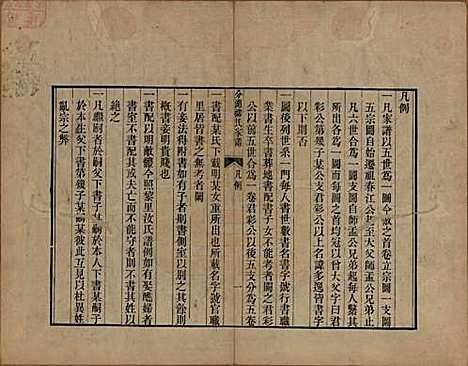 凡例
一凡家譜以五世爲一圖今敬之首卷立宗圖一支圖
五宗圖自始遷祖春江公起至大父師孟公兄弟止
凡六世合爲一圖支圖自師孟公兄弟起每人繫其
所出各爲一圖每圖之首均冠以曾大父字曰君
彩公第幾子某公支君彩公以上名諱多逸皆書字
以下則否
一圖後列世系一門每人書世數書名書字號行書職
業書生卒書葬地書配書子女不能考者闕之君彩
公以前五世合爲一卷君彩公以後五支分爲五卷
分湖柳氏家譜
凡例
一
一書配某氏下載明某女重所出也所載名字號官職
里居皆書之無考者闕
一有妾法得附書側室以別之其餘則
概書妾明嫡體也今照黎里汝氏譜例如有娶應婦者
書室不書配其夫亡而不能守者則不書其姓以
絕之
一凡繼嗣者於嗣父下書子某於本人下書某嗣子
於本生父下書第幾子某嗣某彼此互見以杜異姓
亂宗之弊